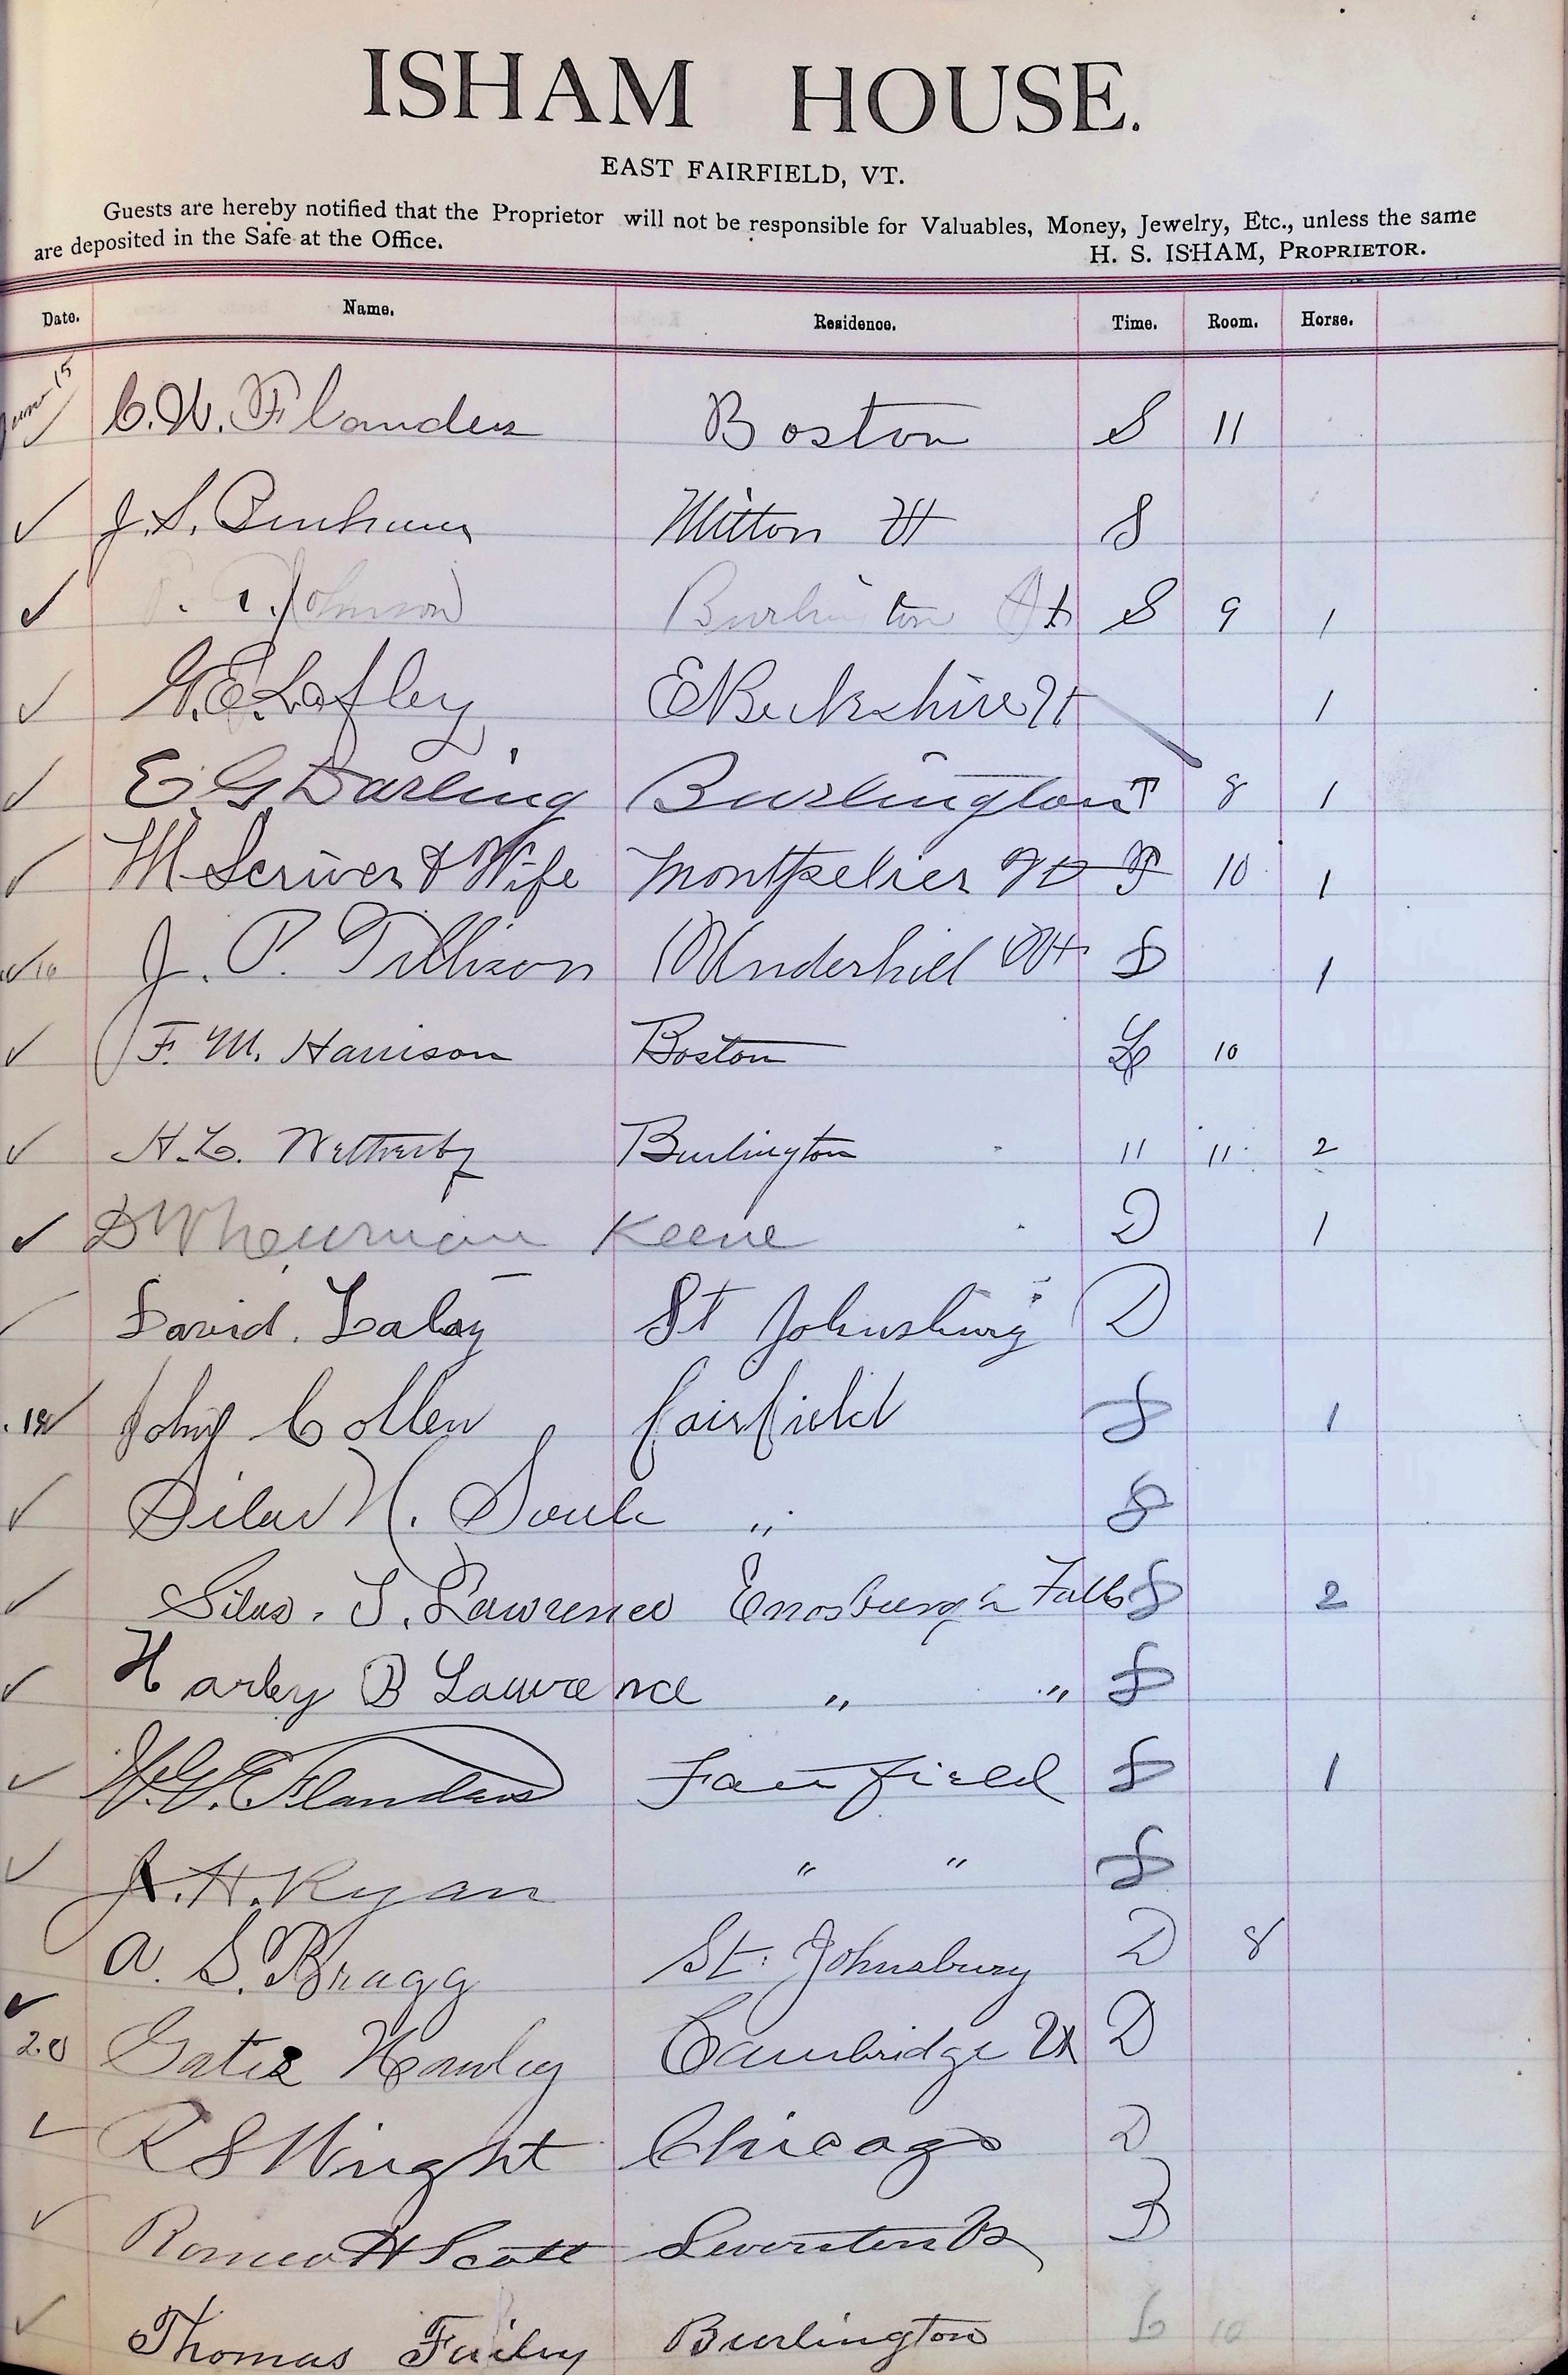 ISHAM HOUSE.
EAST FAIRFIELD, VT.
Guests are hereby notified that the Proprietor will not be responsible for Valuables, Money, Jewelry, Etc., unless the same
are deposited in the Safe at the Office.
H. S. ISHAM, PROPRIETOR.
Date. Name. Residence. Time. Room. Horse.
June 15 C. W. Flanders Boston S 11
J. S. Milton Vt S
Johnson Burlington Vt S 9 1
E Berkshire Vt 1
E. G. Darling Burlington T 8 1
M Scriver & Wife Montpelier Vt 10 1
J. P. Tillison Underhill Vt S 1
F. M. Harrison Boston 10
Burlington 11 11 2
Keene D 1
David St Johnsbury D
John Collen fairfield S 1
Silas N. Soule " S
Silas. S. Lawrence Enosburgh Falls S 2
Harley B Lawrence " " S
Flanders Fairfield S 1
J. H. Ryan " " S
A. S. Bragg St. Johnsbury D 8
20 Gates Hawley Cambridge Vt D
R S Wright Chicago D
Romeo H Scott
Thomas Burlington 10